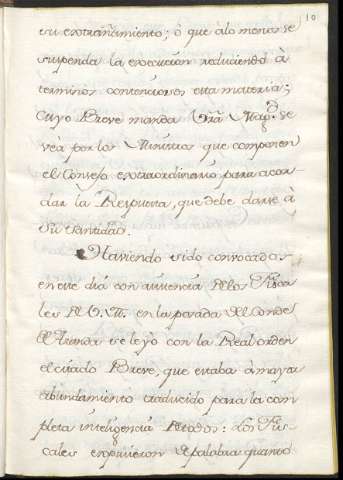 10
su extrañamiento; ó que álo menos se
suspenda la execucion reduciendo á
terminos contenciosos esta materia;
cuyo Breve manda Vrã Mag.d se
vea por los Ministros que componen
el Consejo extraordinario para acor-
dar la Respuesta, que debe darse á
Su Santidad.
Haviendo sido convocados
en este dia con asistencia de los Fisca-
les de V. M. en la posada del Conde
de Aranda se leyó con la Real orden
el citado Breve, que estaba á mayor
abundamiento traducido para la com
pleta inteligencia de todos: Los Fis-
cales expusieron de palabra quanto